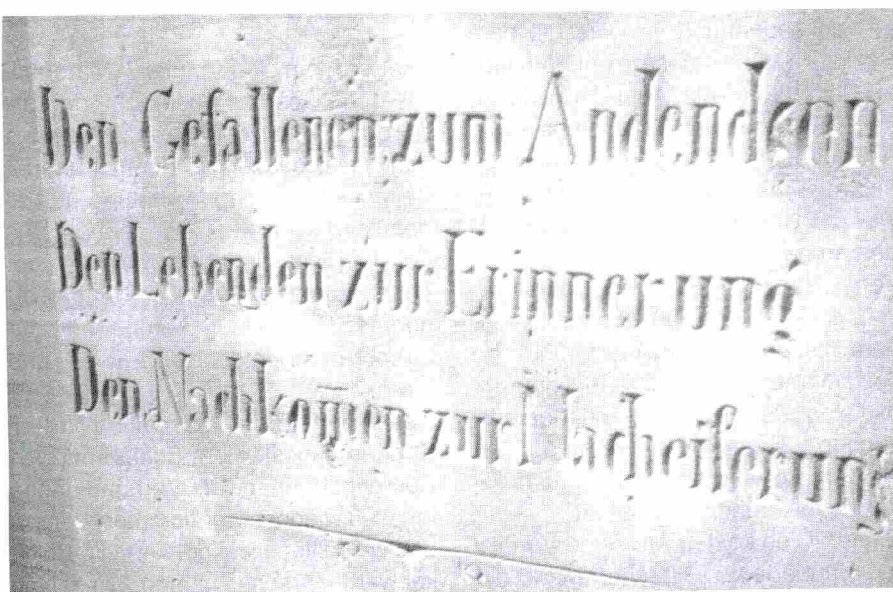 Den Gefallenen zum Andendken
Den Lebenden zur Erinnerung
Den Nachkom̄en zur Nacheiferung